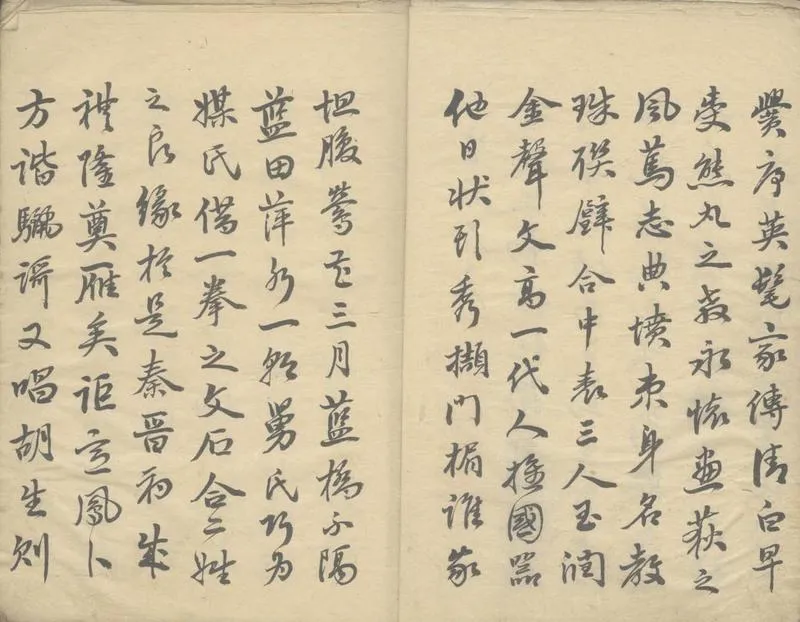 黌序英髦家傳清白早
受熊丸之教永懷畫荻之
風篤志典墳束身名教
珠聯璧合中表三人玉潤
金聲文高一代人推國器
他日狀頭秀擷門楣誰家
坦腹鶯花三月藍橋不隔
藍田萍水一朝舅氏巧為
媒氏借一拳之文石合二姓
之良緣於是秦晉初成
禮隆奠雁矣詎意鳳卜
方諧驪謌又唱胡生則